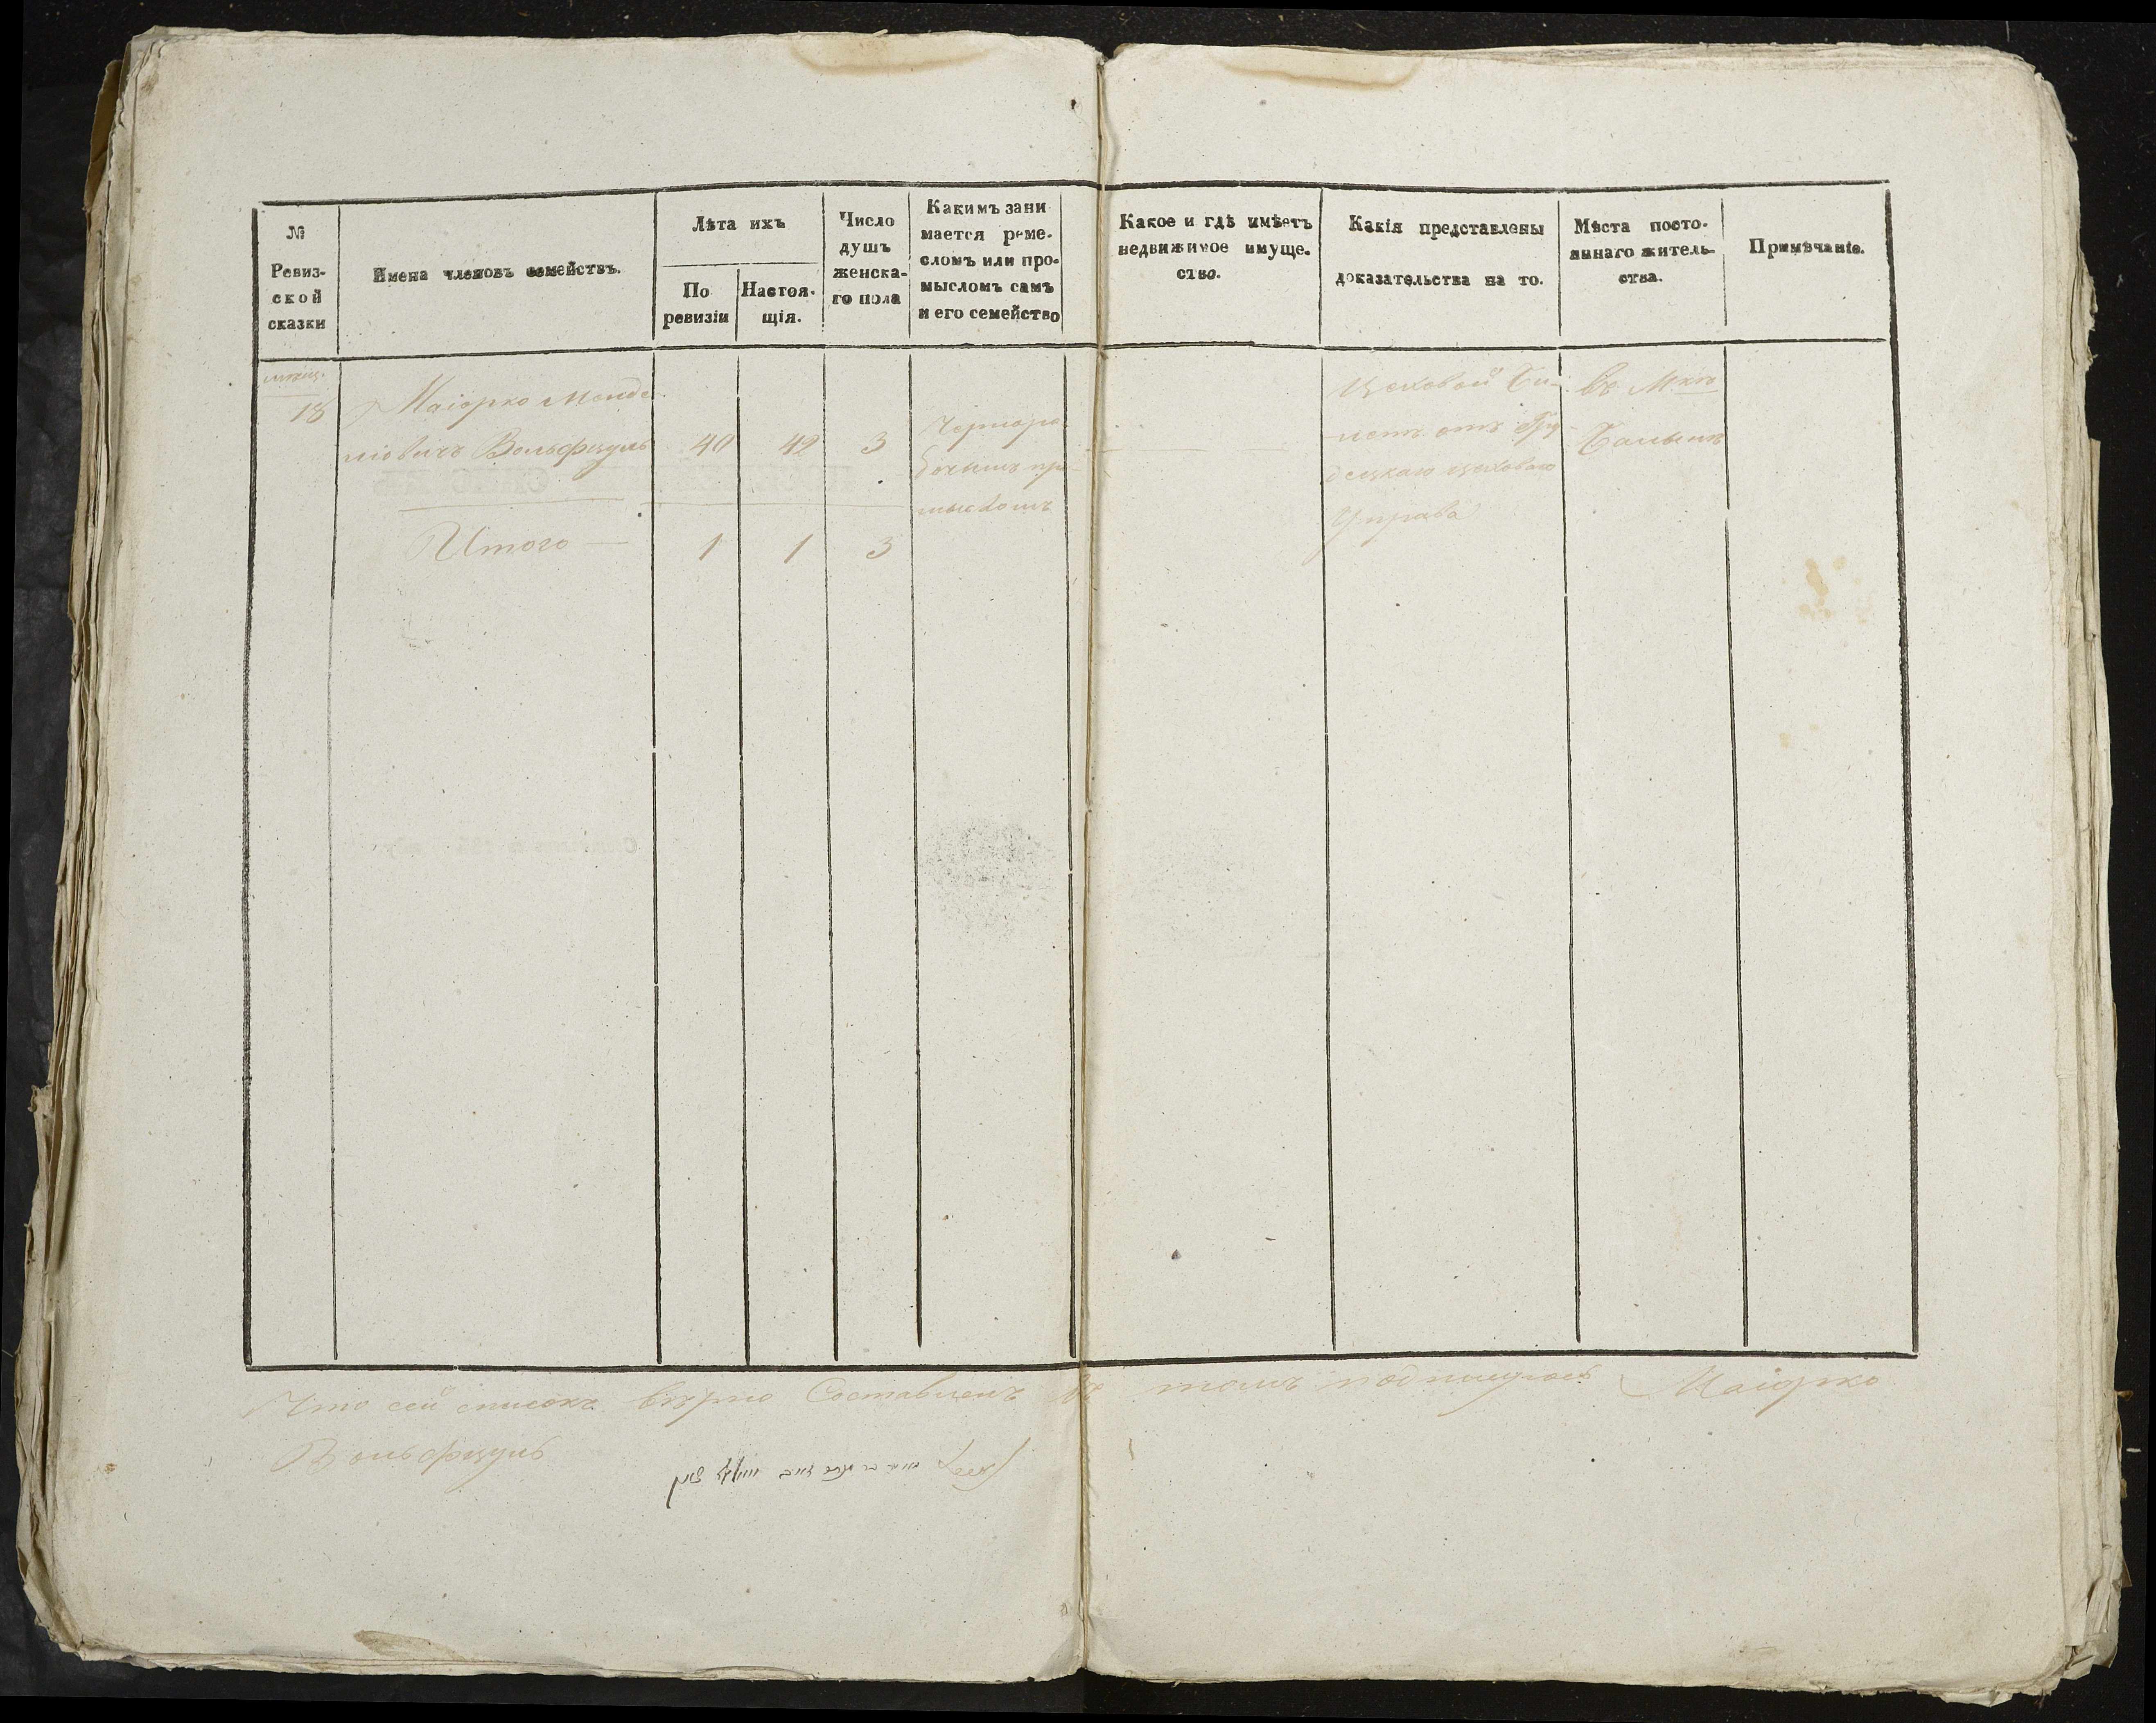 №
Ревиз-
ской
сказки
Имена членовъ семействъ.
Лѣта ихъ
По
ревизіи
Настоя-
щія.
Число
душъ
женска-
го пола
Какимъ зани
мается реме-
сломъ или про-
мысломъ самъ
и его семейство
Какое и гдѣ имѣетъ
недвижимое имуще-
ство.
Какія представлены
доказательства на то.
Мѣста посто-
яннаго житель-
ства.
Примѣчаніе.
18
Маіорко Менде
ліовичъ Вольфцунъ
40
42
3
Чернора
бочимъ про
мысломъ
Цеховой Би-
летъ отъ Гро
децкаго цеховаго
Управа
Въ Мкѣ
Итого —
1
1
3
Что сей списокъ вѣрно Составленъ въ томъ подпишуюсь Маіорко
Вольфцунъ